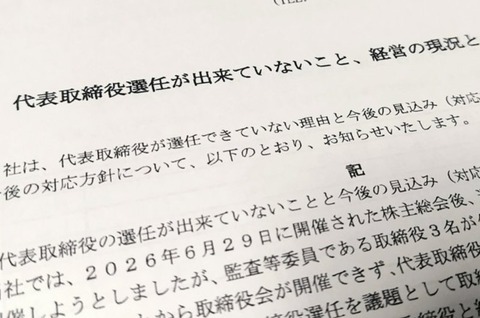 (TEL.
代表取締役選任が出来ていないこと、経営の現況と
社は、代表取締役が選任できていない理由と今後の見込み(対応
後の対応方針について、以下のとおり、お知らせいたします。
記
代表取締役の選任が出来ていないことと今後の見込み(対
社では、2026年6月29日に開催された株主総会後、
催しようとしましたが、監査等委員である取締役3名が
から取締役会が開催できず、代表取締
役選任を議題として取締